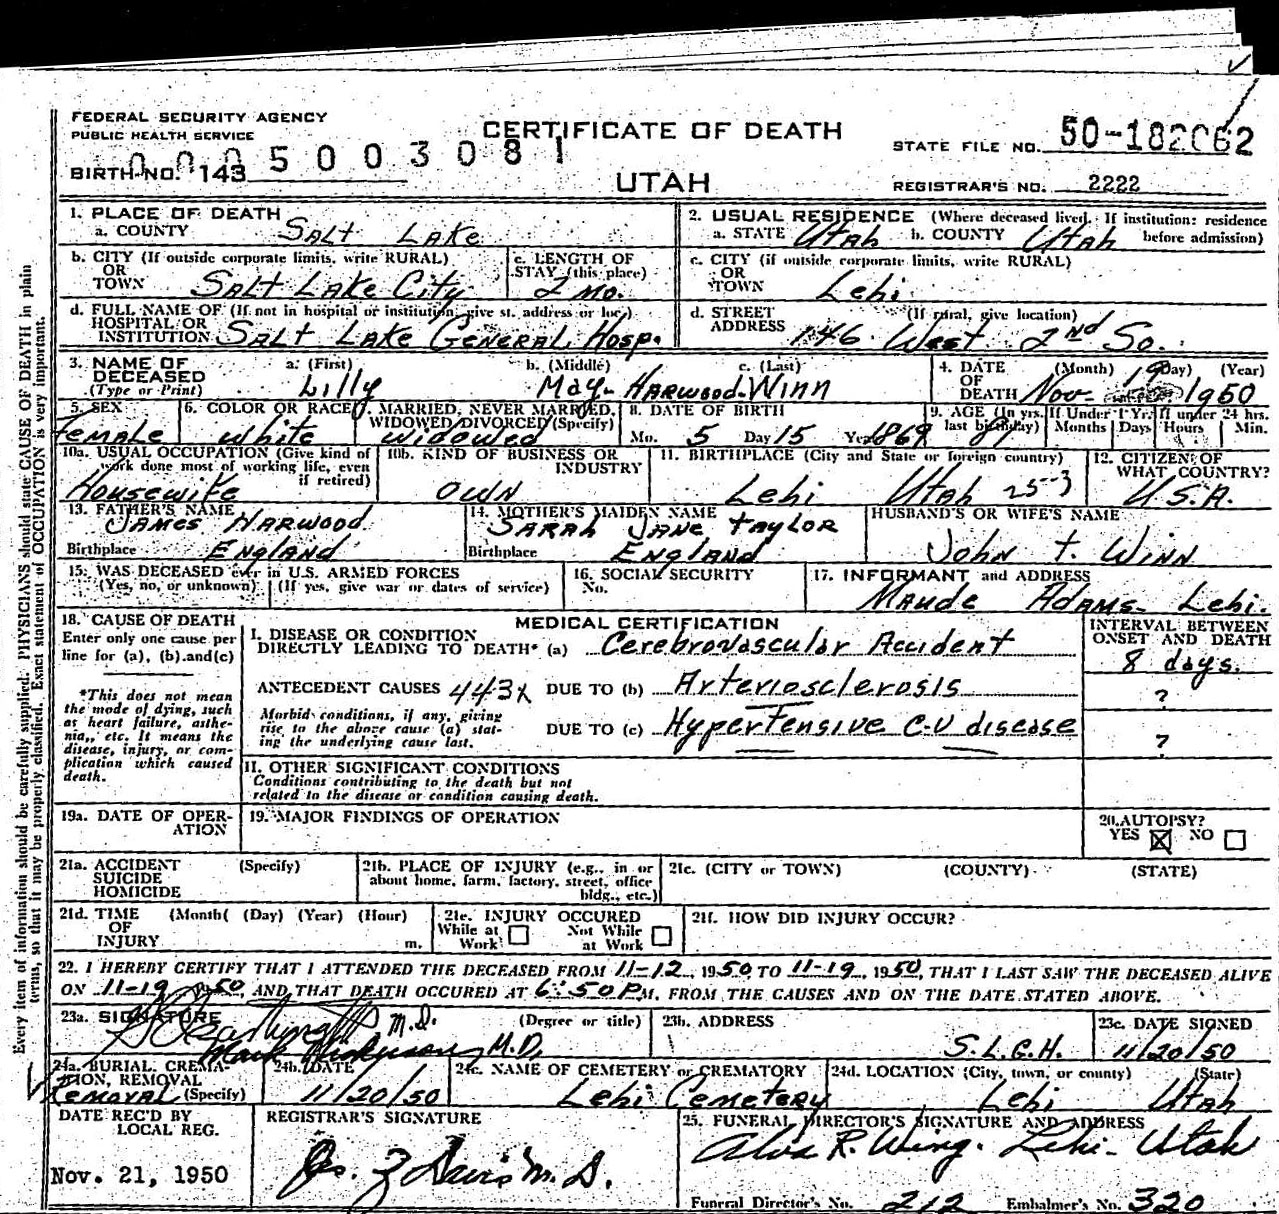 FEDERAL SECURITY AGENCY
PUBLIC HEALTH SERVICE
CERTIFICATE OF DEATH
UTAH
STATE FILE NO. 50-182062
0005003081
BIRTH NO. 143
REGISTRAR'S NO. 2222
1. PLACE OF DEATH
a. COUNTY Salt Lake
2. USUAL RESIDENCE (Where deceased lived. If institution: residence before admission)
a. STATE Utah b. COUNTY Utah
b. CITY (If outside corporate limits, write RURAL) OR TOWN Salt Lake City
c. LENGTH OF STAY (this place) 2 mo.
c. CITY (if outside corporate limits, write RURAL) OR TOWN Lehi
d. FULL NAME OF (If not in hospital or institution, give st. address or loc.) HOSPITAL OR INSTITUTION Salt Lake General Hosp.
d. STREET ADDRESS (If rural, give location) 146 West 2nd So.
3. NAME OF DECEASED (Type or Print)
a. (First) Lilly b. (Middle) May- c. (Last) Harwood-Winn
4. DATE OF DEATH (Month) (Day) (Year) Nov- 19 1950
5. SEX Female
6. COLOR OR RACE White
7. MARRIED, NEVER MARRIED, WIDOWED, DIVORCED (Specify) Widowed
8. DATE OF BIRTH Mo. 5 Day 15 Year 1869
9. AGE (In yrs. last birthday) 81 If Under 1 Yr. Months Days If under 24 hrs. Hours Min.
10a. USUAL OCCUPATION (Give kind of work done most of working life, even if retired) Housewife
10b. KIND OF BUSINESS OR INDUSTRY Own
11. BIRTHPLACE (City and State or foreign country) Lehi Utah 25-3
12. CITIZEN OF WHAT COUNTRY? U.S.A.
13. FATHER'S NAME James Harwood
Birthplace England
14. MOTHER'S MAIDEN NAME Sarah Jane Taylor
Birthplace England
HUSBAND'S OR WIFE'S NAME John T. Winn
15. WAS DECEASED ever in U.S. ARMED FORCES
(Yes, no, or unknown) (If yes, give war or dates of service)
16. SOCIAL SECURITY No.
17. INFORMANT and ADDRESS
Maude Adams- Lehi.
18. CAUSE OF DEATH
Enter only one cause per line for (a), (b) and (c)
*This does not mean the mode of dying, such as heart failure, asthenia, etc. It means the disease, injury, or complication which caused death.
MEDICAL CERTIFICATION
INTERVAL BETWEEN ONSET AND DEATH
I. DISEASE OR CONDITION DIRECTLY LEADING TO DEATH* (a) Cerebrovascular Accident 8 days.
ANTECEDENT CAUSES 443x DUE TO (b) Arteriosclerosis ?
Morbid conditions, if any, giving rise to the above cause (a) stating the underlying cause last.
DUE TO (c) Hypertensive C-V disease ?
II. OTHER SIGNIFICANT CONDITIONS
Conditions contributing to the death but not related to the disease or condition causing death.
19a. DATE OF OPERATION
19. MAJOR FINDINGS OF OPERATION
20. AUTOPSY?
YES ☒ NO ☐
21a. ACCIDENT SUICIDE HOMICIDE (Specify)
21b. PLACE OF INJURY (e.g., in or about home, farm, factory, street, office bldg., etc.)
21c. (CITY or TOWN) (COUNTY) (STATE)
21d. TIME OF INJURY (Month( (Day) (Year) (Hour) m.
21e. INJURY OCCURED While at Work ☐ Not While at Work ☐
21f. HOW DID INJURY OCCUR?
22. I HEREBY CERTIFY THAT I ATTENDED THE DECEASED FROM 11-12, 1950, TO 11-19, 1950, THAT I LAST SAW THE DECEASED ALIVE
ON 11-19 1950, AND THAT DEATH OCCURED AT 6:50 P M. FROM THE CAUSES AND ON THE DATE STATED ABOVE.
23a. SIGNATURE M.D. (Degree or title)
Mark M.D.
23b. ADDRESS S.L.G.H.
23c. DATE SIGNED 11/20/50
24a. BURIAL, CREMATION, REMOVAL (Specify) Removal
24b. DATE 11/20/50
24c. NAME OF CEMETERY or CREMATORY Lehi Cemetery
24d. LOCATION (City, town, or county) (State) Lehi Utah
DATE REC'D BY LOCAL REG. Nov. 21, 1950
REGISTRAR'S SIGNATURE Davis M.D.
25. FUNERAL DIRECTOR'S SIGNATURE AND ADDRESS
Alva R. Wing. Lehi- Utah
Funeral Director's No. 212 Embalmer's No. 320
Every item of information should be carefully supplied. PHYSICIANS should state CAUSE OF DEATH in plain
terms, so that it may be properly classified. Exact statement of OCCUPATION is very important.